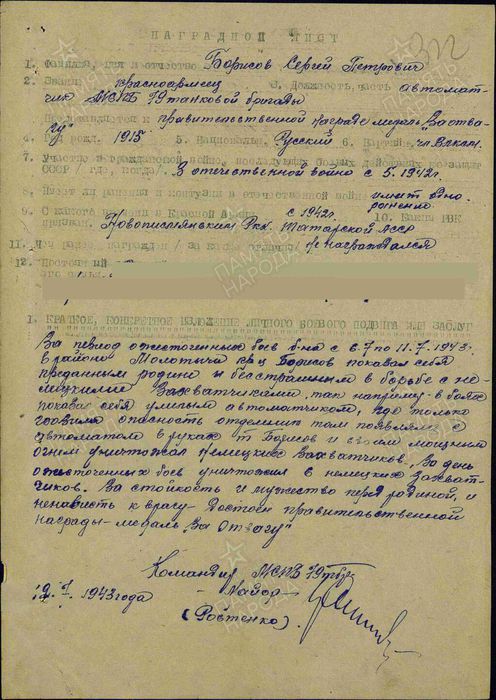 НАГРАДНОЙ ЛИСТ
312
1. Фамилия, имя и отчество Борисов Сергей Петрович
2. Звание красноармеец 3. Должность, часть автомат-
чик МСПБ 79 танковой бригады
Представляется к правительственной награде медаль "За отва-
гу"
4. Год рожд. 1915 5. Национальн. Русский 6. Партийн. чл.
7. Участие в гражданской войне, последующих боевых действиях по защите
СССР /где, когда/ В отечественной войне с 5.1942г.
8. Имеет ли ранения и контузии в отечественной войне имеет одно
ранение
9. С какого времени в Красной Армии с 1942г. 10. Каким РВК
призван. РВК. Татарской АССР
11. Чем ранее награжден /за какие отличия/ Не награждался
12. Постоянный
I. КРАТКОЕ, КОНКРЕТНОЕ ИЗЛОЖЕНИЕ ЛИЧНОГО БОЕВОГО ПОДВИГА ИЛИ ЗАСЛУГ
За период ожесточенных боев б-на с 6.7 по 11.7.1943г.
в районе Молотычи кр-ц Борисов показал себя
преданным родине и бесстрашным в борьбе с не-
мецкими захватчиками, так например в боях
показал себя умелым автоматчиком, где только
грозила опасность отделению там появлялся с
автоматом в руках т. Борисов и своим мощным
огнем уничтожал немецких захватчиков. За день
ожесточенных боев уничтожил 8 немецких захват-
чиков. За стойкость и мужество перед родиной, и
ненависть к врагу - Достоин правительственной
награды - медаль "За Отвагу"
Командир МСПБ 79 тбр
- Майор -
7. 1943 года
(Ростенко)
ПАМЯТЬ НАРОДА